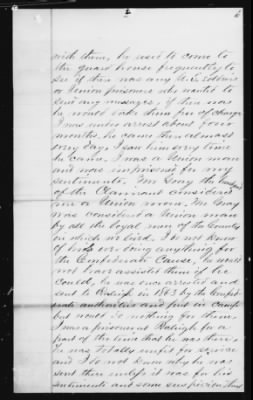 2
with them, he used to come to
the guard house frequently to
see if there was any U.S. soldiers
or Union prisoners who wanted to
send any messages, if there was
he would take them free of charge
I was under arrest about four
months, he came there almost
every day, I saw him every time
he came. I was a Union man
and was imprisoned for my
sentiments. Mr Gray the
of the Claimant considered
me a Union man. Mr Gray
was considered a Union man
by all the loyal men of the County
in which we lived, I do not know
of his ever doing anything for
the Confederate Cause, he would
not have assisted them if he
could, he was once arrested and
sent to Raleigh in 1863 by the Confed-
erate authorities and put in Camp
but would do nothing for them,
I was a prisoner at Raleigh for a
part of the time that he was there,
he was totally unfit for service
and I do not know why he was
sent there unless it was for his
sentiments and some suspicion that